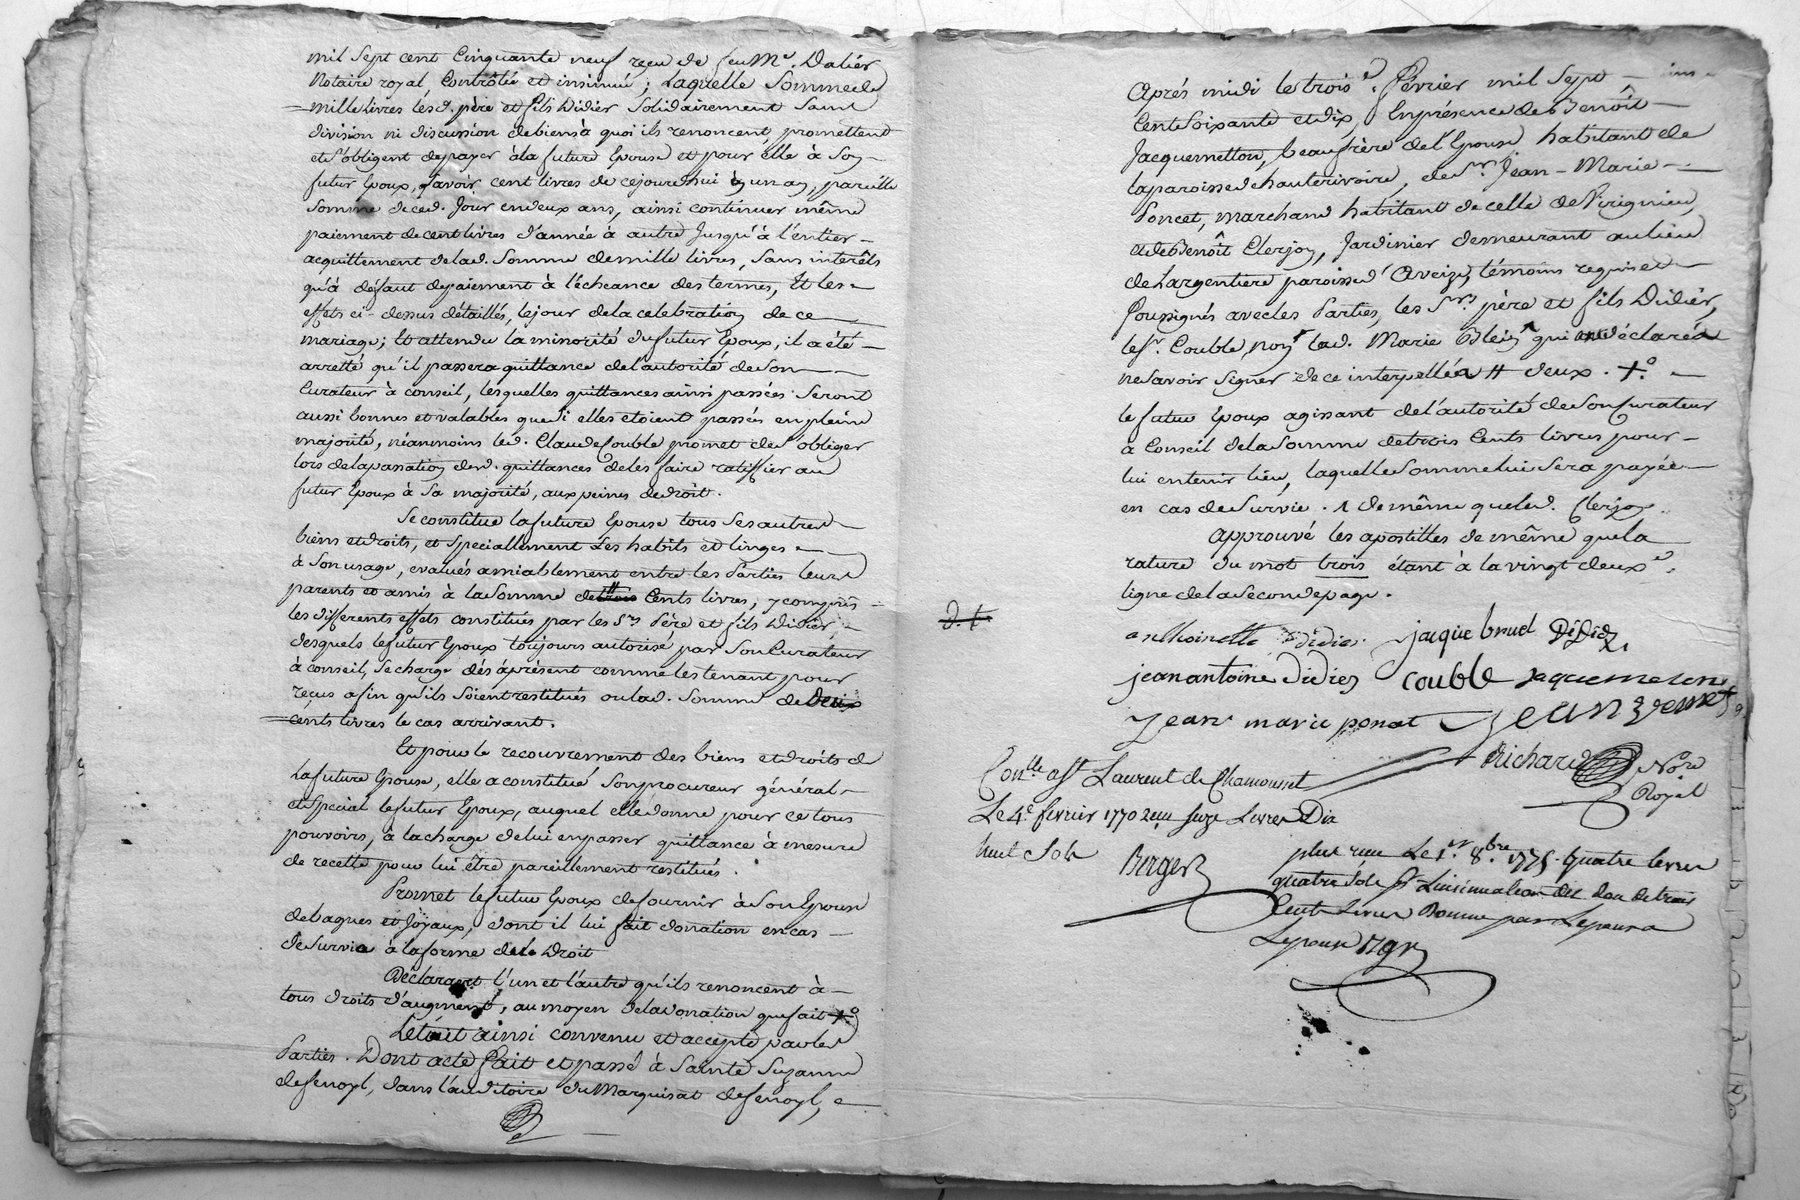 mil Sept cent Cinquante neuf reçu de feu Me. Dalier
Notaire royal, Contrôlée et insinuée; Laquelle Somme de
mille livres lesd. père et fils Didier Solidairement Sans
division ni discussion de biens à quoi ils renoncent, promettent
et s'obligent de payer à la future Epouse et pour elle à Son
futur Epoux, Savoir cent livres de cejourd'hui en un an, pareille
Somme de ced. Jour en deux ans, ainsi continuer même
paiement de cent livres d'année à autre Jusqu'à l'entier
acquittement de lad. Somme de mille livres, Sans intérêts
qu'à défaut de paiement à l'écheance des termes, Et les
effets ci-dessus détaillés, le jour de la celebration de ce
mariage; Et attendu la minorité du futur Epoux, il a été
arretté qu'il passera quittance de l'autorité de Son
Curateur à conseil, lesquelles quittances ainsi passées Seront
aussi bonnes et valables que Si elles etoient passés en pleine
majorité, néanmoins led. Claude Couble promet de S'obliger
lors de la passation desd. quittances de les faire ratiffier au
futur Epoux à Sa majorité, aux peines de droit.
Se constitue la future Epouse tous Ses autres
biens et droits, et Speciallement Ses habits et linges
à Son usage, evalués amiablement entre les Parties leurs
parents et amis à la Somme de trois # Cents livres; y compris
les differents effets constitués par les Srs Père et fils Didier,
desquels le futur Epoux toujours autorisé par Son Curateur
à conseil, Se charge dés àprésent comme les tenant pour
reçus afin qu'ils Soient restitués ou lad. Somme de deux
cents livres le cas arrivant.
Et pour le recouvrement des biens et droits de
La future Epouse, elle a constitué Son procureur général
et Spécial le futur Epoux, auquel elle donne pour ce tous
pouvoirs, à la charge de lui en passer quittance à mesure
de recette pour lui être pareillement restitués.
Promet le futur Epoux de fournir à Son Epouse
de bagues et Joÿaux, dont il lui fait donation en cas
de Survie à la forme de le Droit
Déclarant l'un et l'autre qu'ils renoncent à
tous droits d'augment, au moyen de la donation que fait +o
Le tout ainsi convenu et accepté par les
Parties. Dont acte Fait et passé à Sainte Suzanne
de Senoyl, dans l'auditoire du Marquisat de Senoyl,
Aprés midi le troise. Février mil Sept
Cent Soixante et dix, En présence de Benoît
Jacquemetton, beaufrère de l'Epouse habitant de
la paroisse de hauterivoire, de Sr. Jean-Marie
Poncet, marchand habitant de celle de Virignieu,
et de Benoît Clerjon, Jardinier demeurant au lieu
de Largentiere paroisse d'Aveize, témoins requis et
Soussignés avec les Parties, les Srs. père et fils Didier,
le Sr. Couble, non lad. Marie Bléin ^ qui ont déclarés
ne Savoir Signer de ce interpellés # deux. +o.
le futur Epoux agissant de l'autorité de Son Curateur
à Conseil de la Somme de trois Cents livres pour
lui en tenir lieu, laquelle Somme lui Sera payée
en cas de Survie. ^ de même que led. Clerjon.
Approuvé les apostilles de même que la
rature du mot trois étant à la vingt deuxe.
ligne de la Seconde page.
d. t.
anthoinette didier jaque brud Didier
jean antoine didier couble jaquemeton
jean marie ponset
Richard Nore
Royal
Conlle ast Laurent de Chamousset
Le 4e. fevrier 1770 reçu Seize Livres Dix
huit Sols Berger
plus reçu Le 1er. 8bre. 1775. Quatre livres
quatre Sols pr Linsinuation du don de trois
Cent Livres Donné par Lepoux a
Lepouse